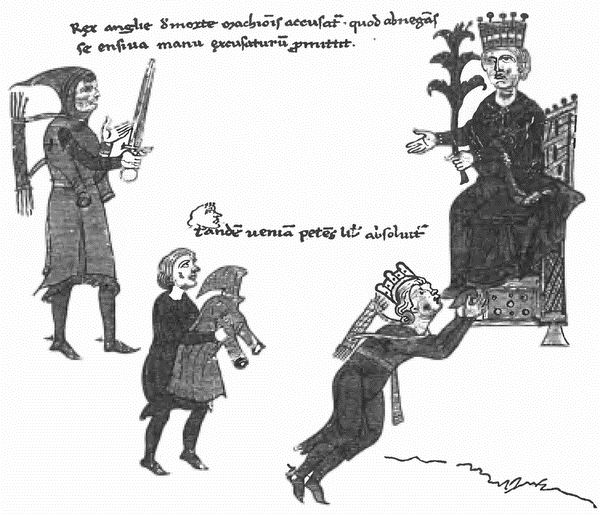 Rex anglie d̄ morte marchiōis accusat̃ · quod abnegās
se ensiua manu excusaturū ꝓmittit.
tandē ueniā petēs lib̃ absoluit̃